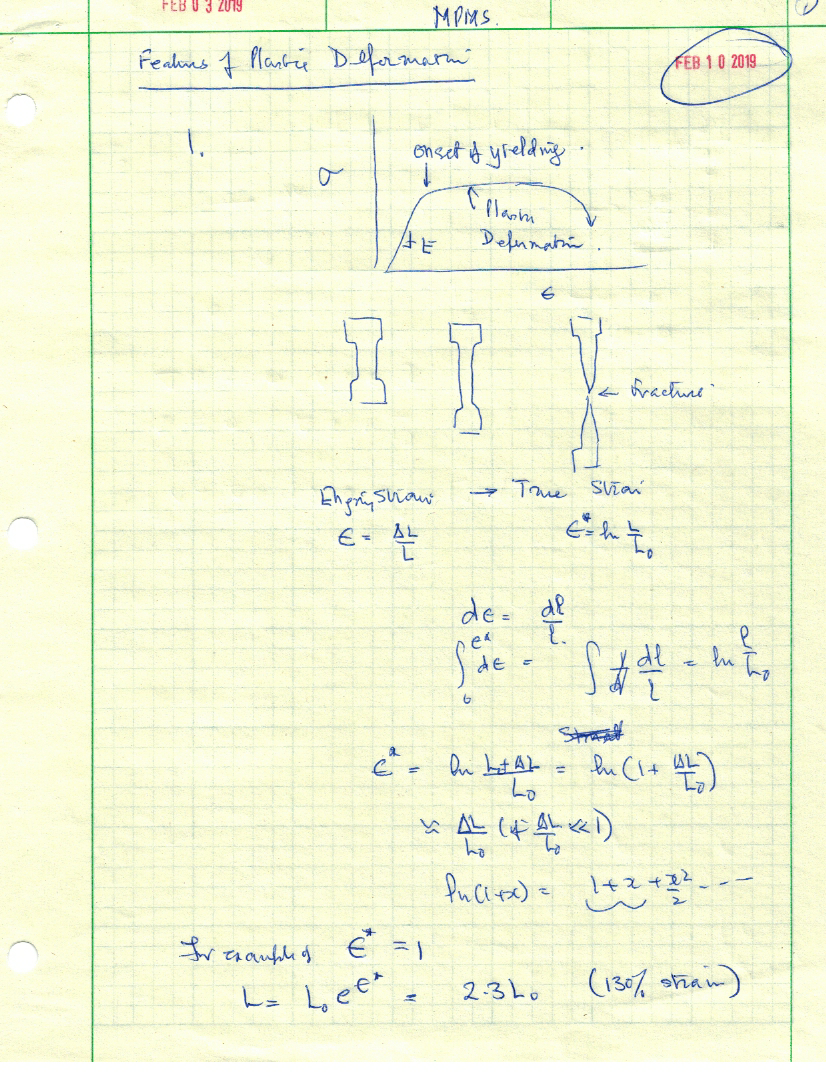 FEB 0 3 2019
MPMS.
Features of Plastic Deformation
FEB 1 0 2019
1.
onset of yielding.
σ
Plastic
Deformation.
E
ε
← Fracture
Engrg Strain → True Strain
ε = ΔL/L ε* = ln L/L₀
dε = dl/l.
∫₀^ε* dε = ∫ dl/l = ln l/L₀
ε* = ln (L₀+ΔL)/L₀ = ln (1 + ΔL/L₀)
≈ ΔL/L₀ (if ΔL/L₀ << 1)
ln(1+x) = 1 + x + x²/2 - - -
For example if ε* = 1
L = L₀ e^ε* = 2.3 L₀ (130% strain)